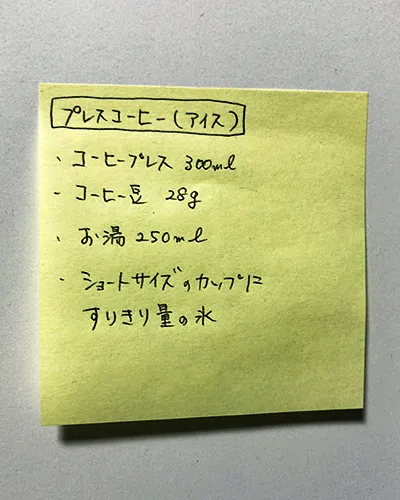 プレスコーヒー(アイス)
・コーヒープレス 300ml
・コーヒー豆 28g
・お湯 250ml
・ショートサイズのカップに
すりきり量の氷